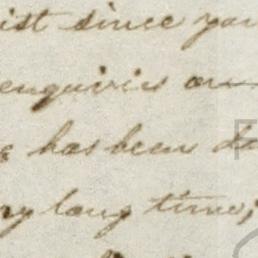 ist since you
enquiries on
has been da
ry long time;